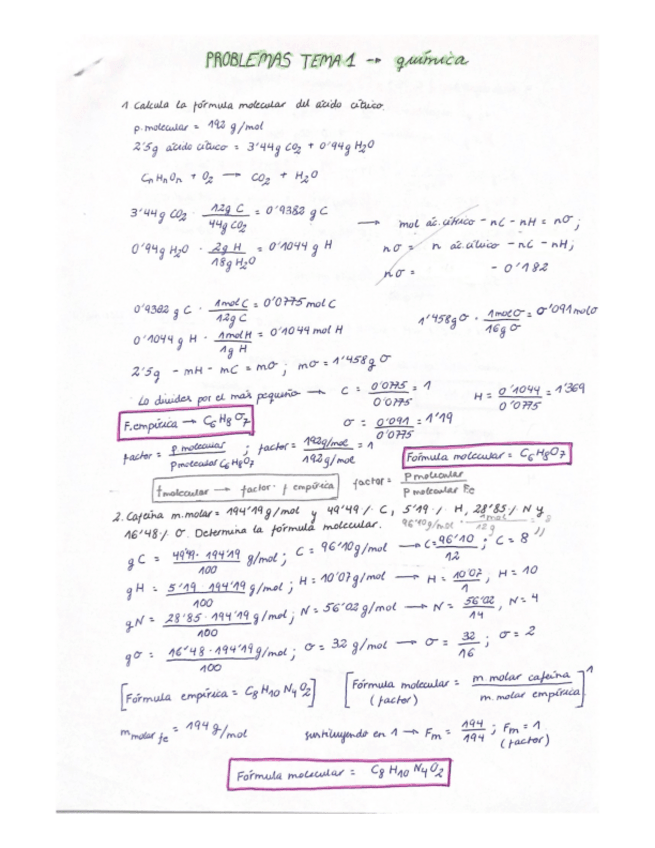 PROBLEMAS TEMA 1 → química
1 Calcula la fórmula molecular del ácido cítrico.
p. molecular = 192 g/mol
2'5g ácido cítrico = 3'44g CO2 + 0'94g H2O
CnHnOn + O2 → CO2 + H2O
3'44g CO2 · 12g C / 44g CO2 = 0'9382 g C
→ mol ác. cítrico - nC - nH = nO;
0'94g H2O · 2g H / 18g H2O = 0'1044 g H
nO = n ác. cítrico - nC - nH;
nO = - 0'182
0'9382 g C · 1 mol C / 12g C = 0'0775 mol C
1'458g O · 1 mol O / 16g O = 0'091 mol O
0'1044 g H · 1 mol H / 1g H = 0'1044 mol H
2'5g - mH - mC = mO ; mO = 1'458g O
Lo divides por el más pequeño → C = 0'0775 / 0'0775 = 1
H = 0'1044 / 0'0775 = 1'369
F. empírica → C6H8O7
O = 0'091 / 0'0775 = 1'19
factor = p. molecular / p molecular C6H8O7 ; factor = 192g/mol / 192g/mol = 1
Fórmula molecular = C6H8O7
f molecular → factor · f empírica
factor = p molecular / p molecular Fe
2. Cafeína m. molar = 194'19g/mol y 49'49 % C, 5'19 % H, 28'85 % N y
16'48 % O. Determina la fórmula molecular.
96'10g/mol · 1mol / 12g =
g C = 49'49 · 194'19 / 100 g/mol ; C = 96'10g/mol → C = 96'10 / 12 ; C = 8
gH = 5'19 · 194'19 / 100 g/mol ; H = 10'07g/mol → H = 10'07 / 1 , H = 10
gN = 28'85 · 194'19 / 100 g/mol ; N = 56'02g/mol → N = 56'02 / 14 , N = 4
gO = 16'48 · 194'19 / 100 g/mol ; O = 32 g/mol → O = 32 / 16 ; O = 2
[Fórmula empírica = C8H10N4O2]
[Fórmula molecular = m molar cafeína / m. molar empírica] 1
(factor)
m molar fe = 194 g/mol
sustituyendo en 1 → Fm = 194 / 194 ; Fm = 1
(factor)
Fórmula molecular = C8H10N4O2